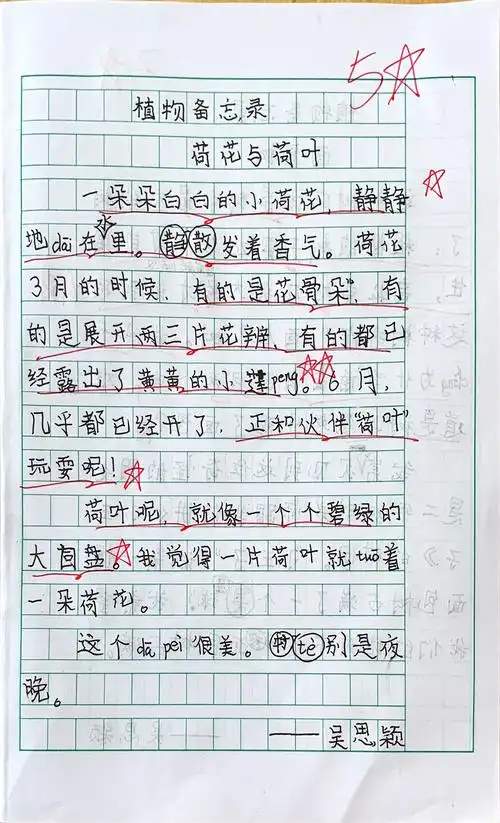 5☆
植物备忘录
荷花与荷叶
一朵朵白白的小荷花，静静
地dāi在水里。静散发着香气。荷花
3月的时候，有的是花骨朵，有
的是展开两三片花瓣，有的都已
经露出了黄黄的小莲peng。6月，
几乎都已经开了，正和伙伴“荷叶”
玩耍呢！
荷叶呢，就像一个个碧绿的
大圆盘。我觉得一片荷叶就tuō着
一朵荷花。
这个dā pèi很美。特tè别是夜
晚。
——吴思颖